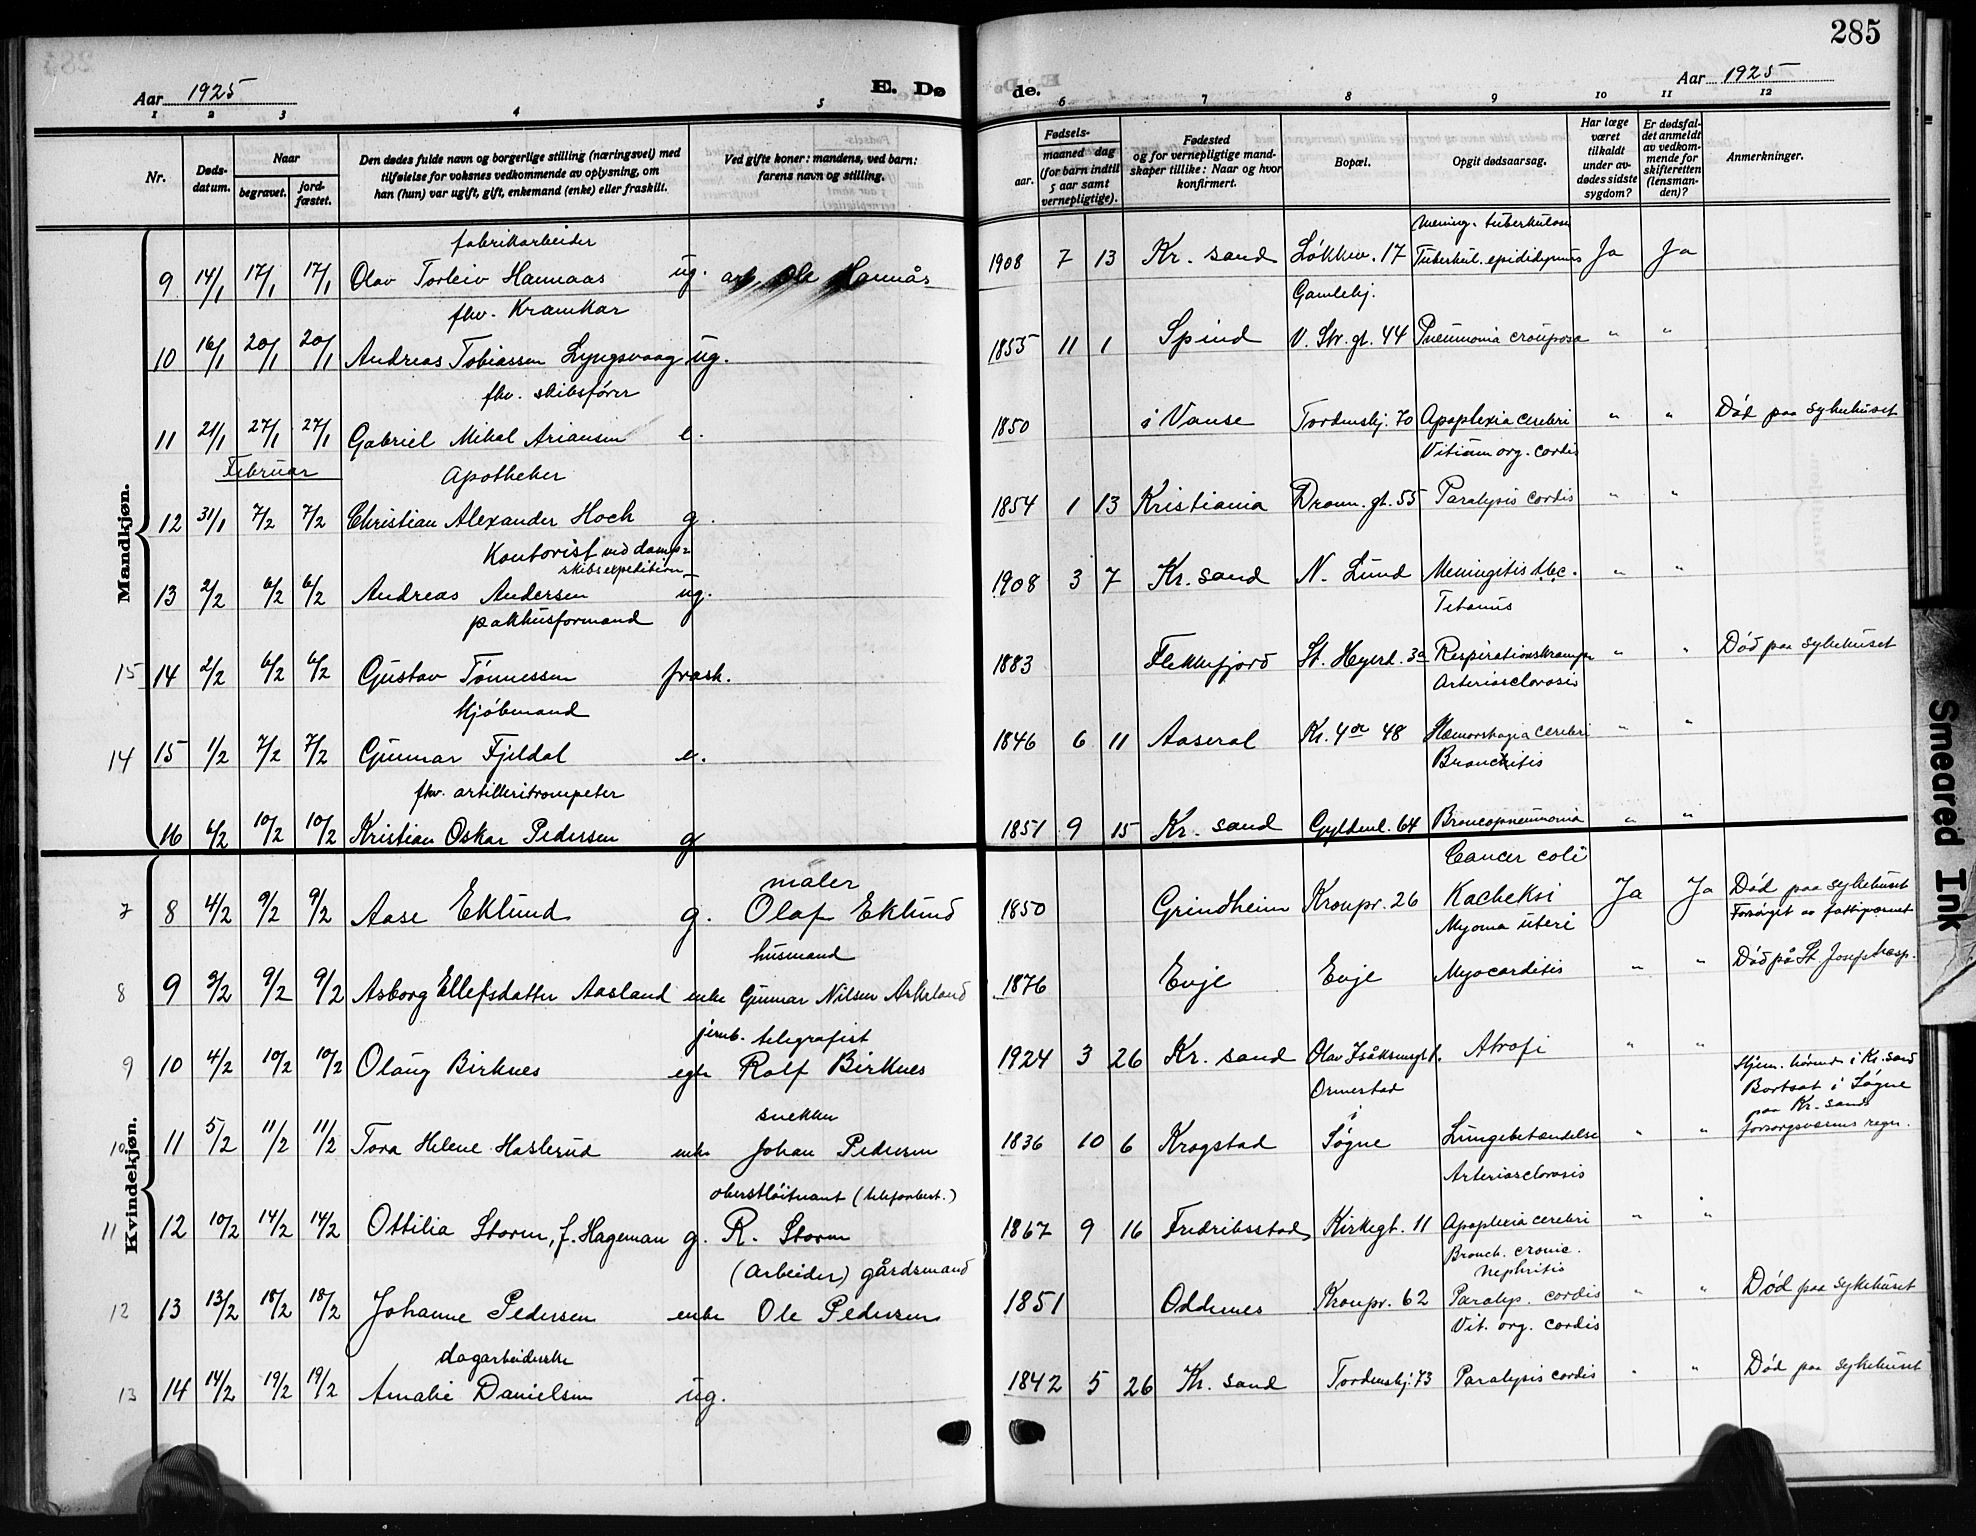 285
Aar 1925
E. Dø
de.
Aar 1925
1 2 3 4 5
6 7 8 9 10 11 12
Nr.
Døds-
datum.
Naar
begravet.
jord-
fæstet.
Den dødes fulde navn og borgerlige stilling (næringsvei) med
tilføielse for voksnes vedkommende av oplysning, om
han (hun) var ugift, gift, enkemand (enke) eller fraskilt.
Ved gifte koner: mandens, ved barn:
farens navn og stilling.
Fødsels-
aar.
maaned dag
(for barn indtil
5 aar samt
vernepligtige).
Fødested
og for vernepligtige mand-
skaper tillike: Naar og hvor
konfirmert.
Bopæl.
Opgit dødsaarsag.
Har læge
været
tilkaldt
under av-
dødes sidste
sygdom?
Er dødsfal-
det anmeldt
av vedkom-
mende for
skifteretten
(lensman-
den)?
Anmerkninger.
Mandkjøn.
fabrikarbeider Mening. tuberkulosa
9 14/1 17/1 17/1 Olav Torleiv Hannaas ug. arb. Ole Hannås 1908 7 13 Kr. sand Løkkev. 17 Tuberkul. epididymis Ja Ja
fhv. Kramkar Gamlehj.
10 16/1 20/1 20/1 Andreas Tobiassen Lyngsvaag ug. 1855 11 1 Spind V. Str. gt. 44 Pneumonia crouposa " "
fhv. skibsfører
11 21/1 27/1 27/1 Gabriel Mikal Ariansen e. 1850 i Vanse Tordenskj. 70 Apoplexia cerebri " " Død paa sykehuset
Februar Apotheker Vitium org. cordis
12 31/1 7/2 7/2 Christian Alexander Hoch g. 1854 1 13 Kristiania Dronn. gt. 55 Paralysis cordis " "
Kontorist ved damp-
skibsexpedition
13 2/2 6/2 6/2 Andreas Andersen ug. 1908 3 7 Kr. sand N. Lund Meningitis tbc. " "
pakhusformand Tetanus
15 14 2/2 6/2 6/2 Gustav Tønnessen frask. 1883 Flekkefjord St. Hegert. 3a Respirationskrampe " " Død paa sykehuset
kjøbmand Arteriosclerosis
14 15 1/2 7/2 7/2 Gunnar Fjeldal e. 1846 6 11 Aaseral Kr. 4de 48 Hæmorrhagia cerebri " "
fhv. artilleritrompeter Bronchitis
16 6/2 10/2 10/2 Kristian Oskar Pedersen g 1851 9 15 Kr. sand Gyldenl. 64 Broncopneumonia " "
Kvindekjøn.
maler Cancer coli
7 8 4/2 9/2 9/2 Aase Eklund g. Olaf Eklund 1850 Grindheim Kronpr. 26 Kacheksi Ja Ja Død paa sykehuset
Myoma uteri Forsørget av fattigvæsnet
husmand
8 9 3/2 9/2 9/2 Asborg Ellefsdatter Aasland enke Gunnar Nilsen Askeland 1876 Evje Evje Myocarditis " " Død på St. Josephs hosp.
jernb. telegrafist
9 10 4/2 10/2 10/2 Olaug Birknes egte Rolf Birknes 1924 3 26 Kr. sand Olav Isåksensgt. Atrofi " "
snekker Ormestad
i
10 11 5/2 11/2 11/2 Tora Helene Haslerud enke Johan Pedersen 1836 10 6 Krogstad Søgne Lungebetændelse " " Hjem. hørende i Kr. sand
Bortsat i Søgne
paa Kr. sands
forsorgsvæsens regn.
oberstløitnant (telefonbest.) Arteriosclerosis
11 12 10/2 14/2 14/2 Ottilia Storm, f. Hageman g. R. Storm 1867 9 16 Fredriksstad Kirkegt. 11 Apoplexia cerebri " "
(Arbeider) gårdsmand Bronch. cronic.
Nephritis
12 13 13/2 18/2 18/2 Johanne Pedersen enke Ole Pedersen 1851 Oddernes Kronpr. 62 Paralys. cordis " " Død paa sykehuset
dagarbeiderske Vit. org. cordis
13 14 14/2 19/2 19/2 Amalie Danielsen ug. 1842 5 26 Kr. sand Tordenskj. 73 Paralysis cordis " " Død paa sykehuset
Smeared Ink